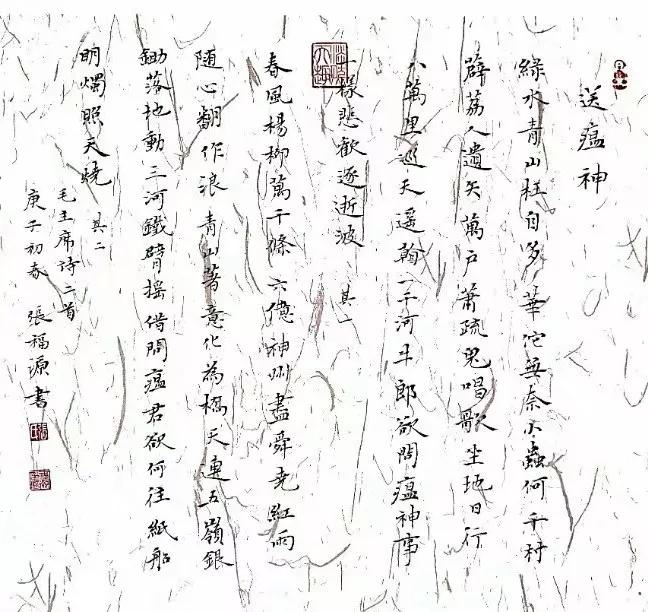 送瘟神
綠水青山枉自多華佗無奈小蟲何千村
薜荔人遺矢萬戶蕭疏鬼唱歌坐地日行
八萬里巡天遥看一千河牛郎欲問瘟神事
一樣悲歡逐逝波 其一
春風楊柳萬千條六億神州盡舜堯紅雨
隨心翻作浪青山著意化為橋天連五嶺銀
鋤落地動三河鐵臂摇借問瘟君欲何往紙船
明燭照天燒 其二
毛主席诗二首
庚子初春 張福源書